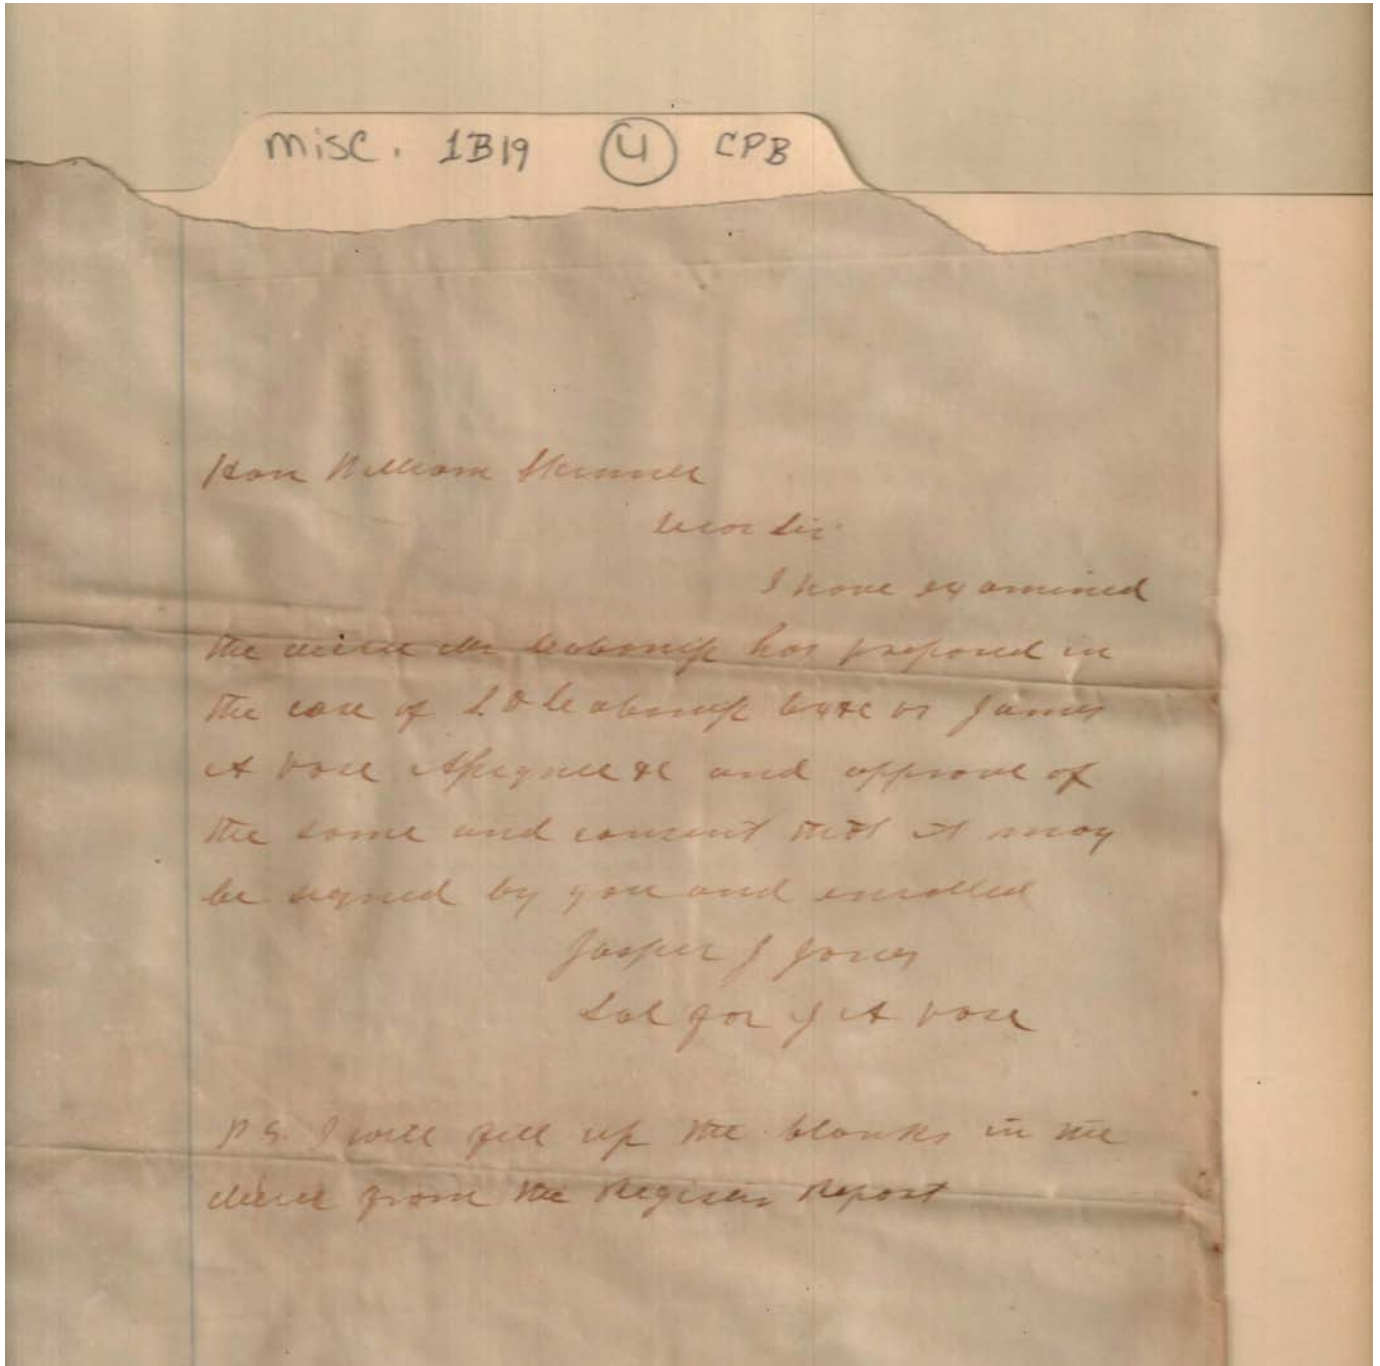 misc. 1B19 4 CPB
Hon William Skinner
Dear Sir
I have examined
the decree Mr has prepared in
the case of L D &c vs James
A Vose Assignee &c and approve of
the same and consent that it may
be signed by you and enrolled
Jasper J Jones
Sol for J A Vose
P S. I will fill up the blanks in the
decree from the Registers Report